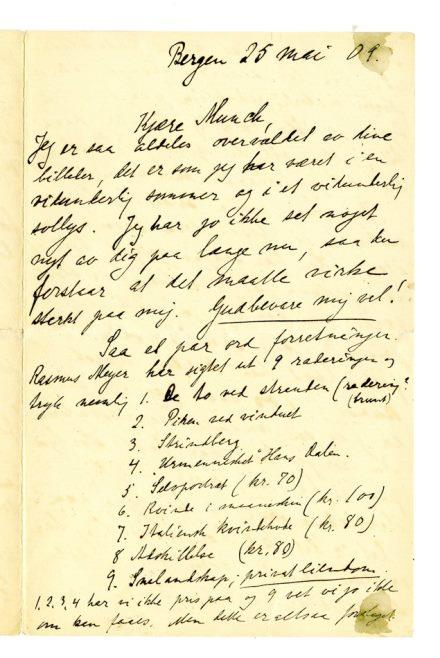 Bergen 25 mai 09.
Kjære Munch,
Jeg er saa aldeles overvældet av dine
billeder, det er som jeg har været i en
vidunderlig sommer og i et vidunderlig
sollys. Jeg har jo ikke set noget
nyt av dig paa længe nu, saa du
forstaar at det maatte virke
sterkt paa mig. Gudbevare mig vel!
Saa et par ord forretninger.
Rasmus Meyer har sigtet ut 9 raderinger og
tryk nemlig 1. De to ved stranden (radering?
(brunt)
2. Piken ved vinduet
3. Strindberg
4. "Urmennesket" Hans Dalen.
5. Selvportræt (kr. 70)
6. Kvinde i maaneskin (kr. 100)
7. Italiensk kvindehode (kr. 80)
8 Adskillelse (kr. 80)
9. Snelandskap, privat eiendom.
1, 2, 3, 4 har vi ikke pris paa og 9 vet vi jo ikke
om kan faaes. Men dette er altsaa